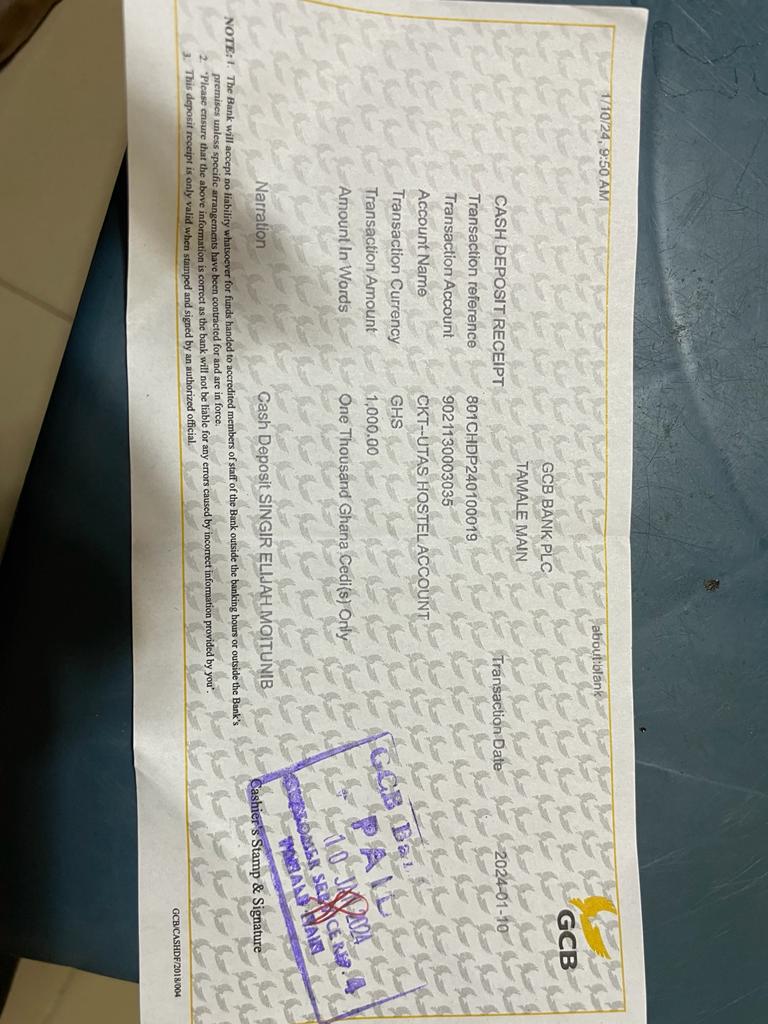 1/10/24, 9:50 AM about:blank
GCB
GCB BANK PLC
TAMALE MAIN
CASH DEPOSIT RECEIPT Transaction Date 2024-01-10
Transaction reference 801CHDP240100019
Transaction Account 9021130003035
Account Name CKT--UTAS HOSTEL ACCOUNT
Transaction Currency GHS
Transaction Amount 1,000.00
Amount In Words One Thousand Ghana Cedi(s) Only
Narration Cash Deposit SINGIR ELIJAH MOITUNIB
GCB
PAID
10 JAN 2024
CUSTOMER SERVICE REP. 4
TAMALE MAIN
Cashier's Stamp & Signature
NOTE: 1. The Bank will accept no liability whatsoever for funds handed to accredited members of staff of the Bank outside the banking hours or outside the Bank's
premises unless specific arrangements have been contracted for and are in force.
2. 'Please ensure that the above information is correct as the bank will not be liable for any errors caused by incorrect information provided by you'.
3. This deposit receipt is only valid when stamped and signed by an authorized official.
GCB/CASHDF/2018/004